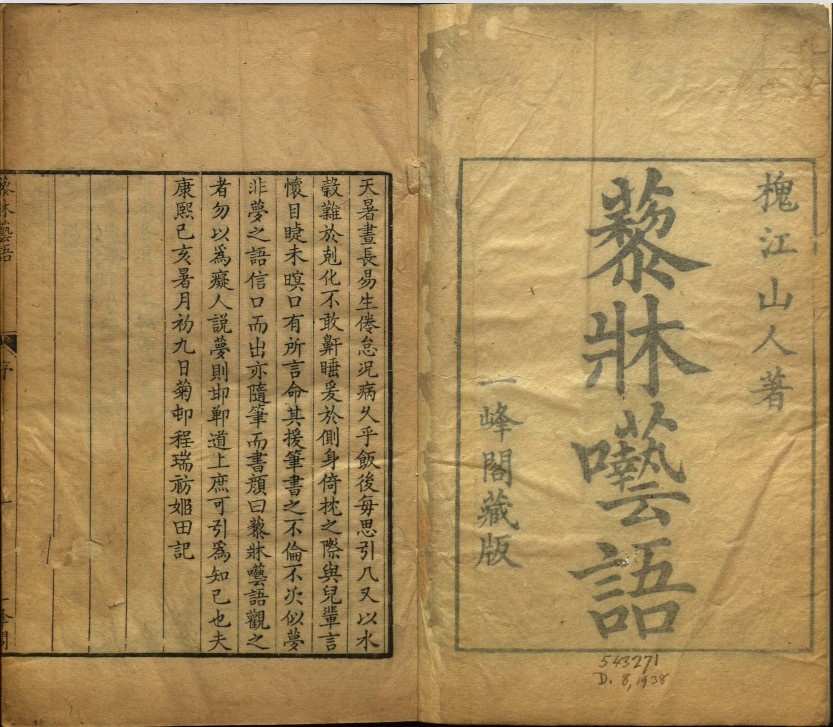 槐江山人著
藜牀囈語
一峰閣藏版
543271
D. 8, 1938
天暑晝長易生倦怠况病久乎飯後每思引几又以水
穀難於剋化不敢鼾睡爰於側身倚枕之際與兒輩言
懷目睫未暝口有所言命其援筆書之不倫不次似夢
非夢之語信口而出亦隨筆而書顏曰藜牀囈語觀之
者勿以爲癡人說夢則邯鄲道上庶可引爲知已也夫
康熙己亥暑月初九日菊邨程瑞祊姬田記
藜牀囈語
序
一
一峰閣